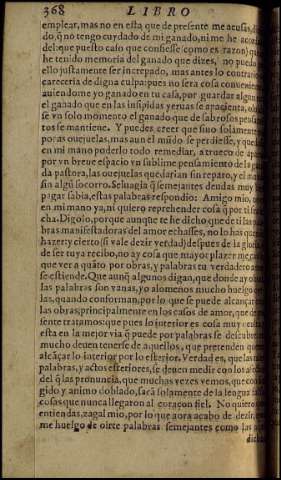 368 LIBRO
emplear, mas no en esta que de presente me acusas,
do, q̃ no tengo cuydado de mi ganado, ni me he
del: que puesto caso que confiesse (como es razon) q
he tenido memoria del ganado que dizes, no pueda
ello justamente ser increpado, mas antes lo contrario
careceria de digna culpa: pues no sera cosa conuenie
auiendome yo ganado en tu casa, por guardar alguna
el ganado que en las insipidas yeruas se apacienta,
se vn solo momento el ganado que de sabrosos pensa
tos se mantiene. Y puedes creer que si no solamente
poras ouejuelas, mas aun el mũdo se perdiesse, y que
en mi mano poderlo todo remediar, a trueco de ap
por vn breue espacio vn sublime pensamiento de la
da pastora, las ouejuelas quedarian sin reparo, y el m
sin algũ socorro. Seluagia q̃ semejantes deudas muy b
pagar sabia, estas palabras respondio: Amigo mio,
en mi mano ya, ni quiero reprehender cosa q̃ por ti
cha. Digolo, porque aunque te he dicho que de ti las
bras manifestadoras del amor echasses, no lo has que
hazer: y cierto (si vale dezir verdad) despues de la gloria
de ser tuya recibo, no ay cosa que mayor plazer me
que ver a quãto por obras, y palabras tu verdadero am
se estiende. Que aunq̃ algunos digan, que donde ay ob
las palabras son vanas, yo alomenos mucho huelgo
las, quando conforman, por lo que se puede alcançar
las obras, principalmente en los casos de amor, que de
sente tratamos: que pues lo interior es cosa muy
esta en la mejor via q̃ puede por palabras se descubra
mucho deuen tenerse de aquellos, que pretenden
alcãçar lo interior por lo esterior. Verdad es, que las
palabras, y actos esteriores, se deuen medir con los
del q̃ las pronuncia, que muchas vezes vemos, que con
gido y animo doblado, sacã solamente de la lengua
cosas que nunca llegaron al coraçon fiel. No quiero
entiendas, zagal mio, por lo que aora acabo de dezir,
me huelgo de oirte palabras semejantes como las
dicho